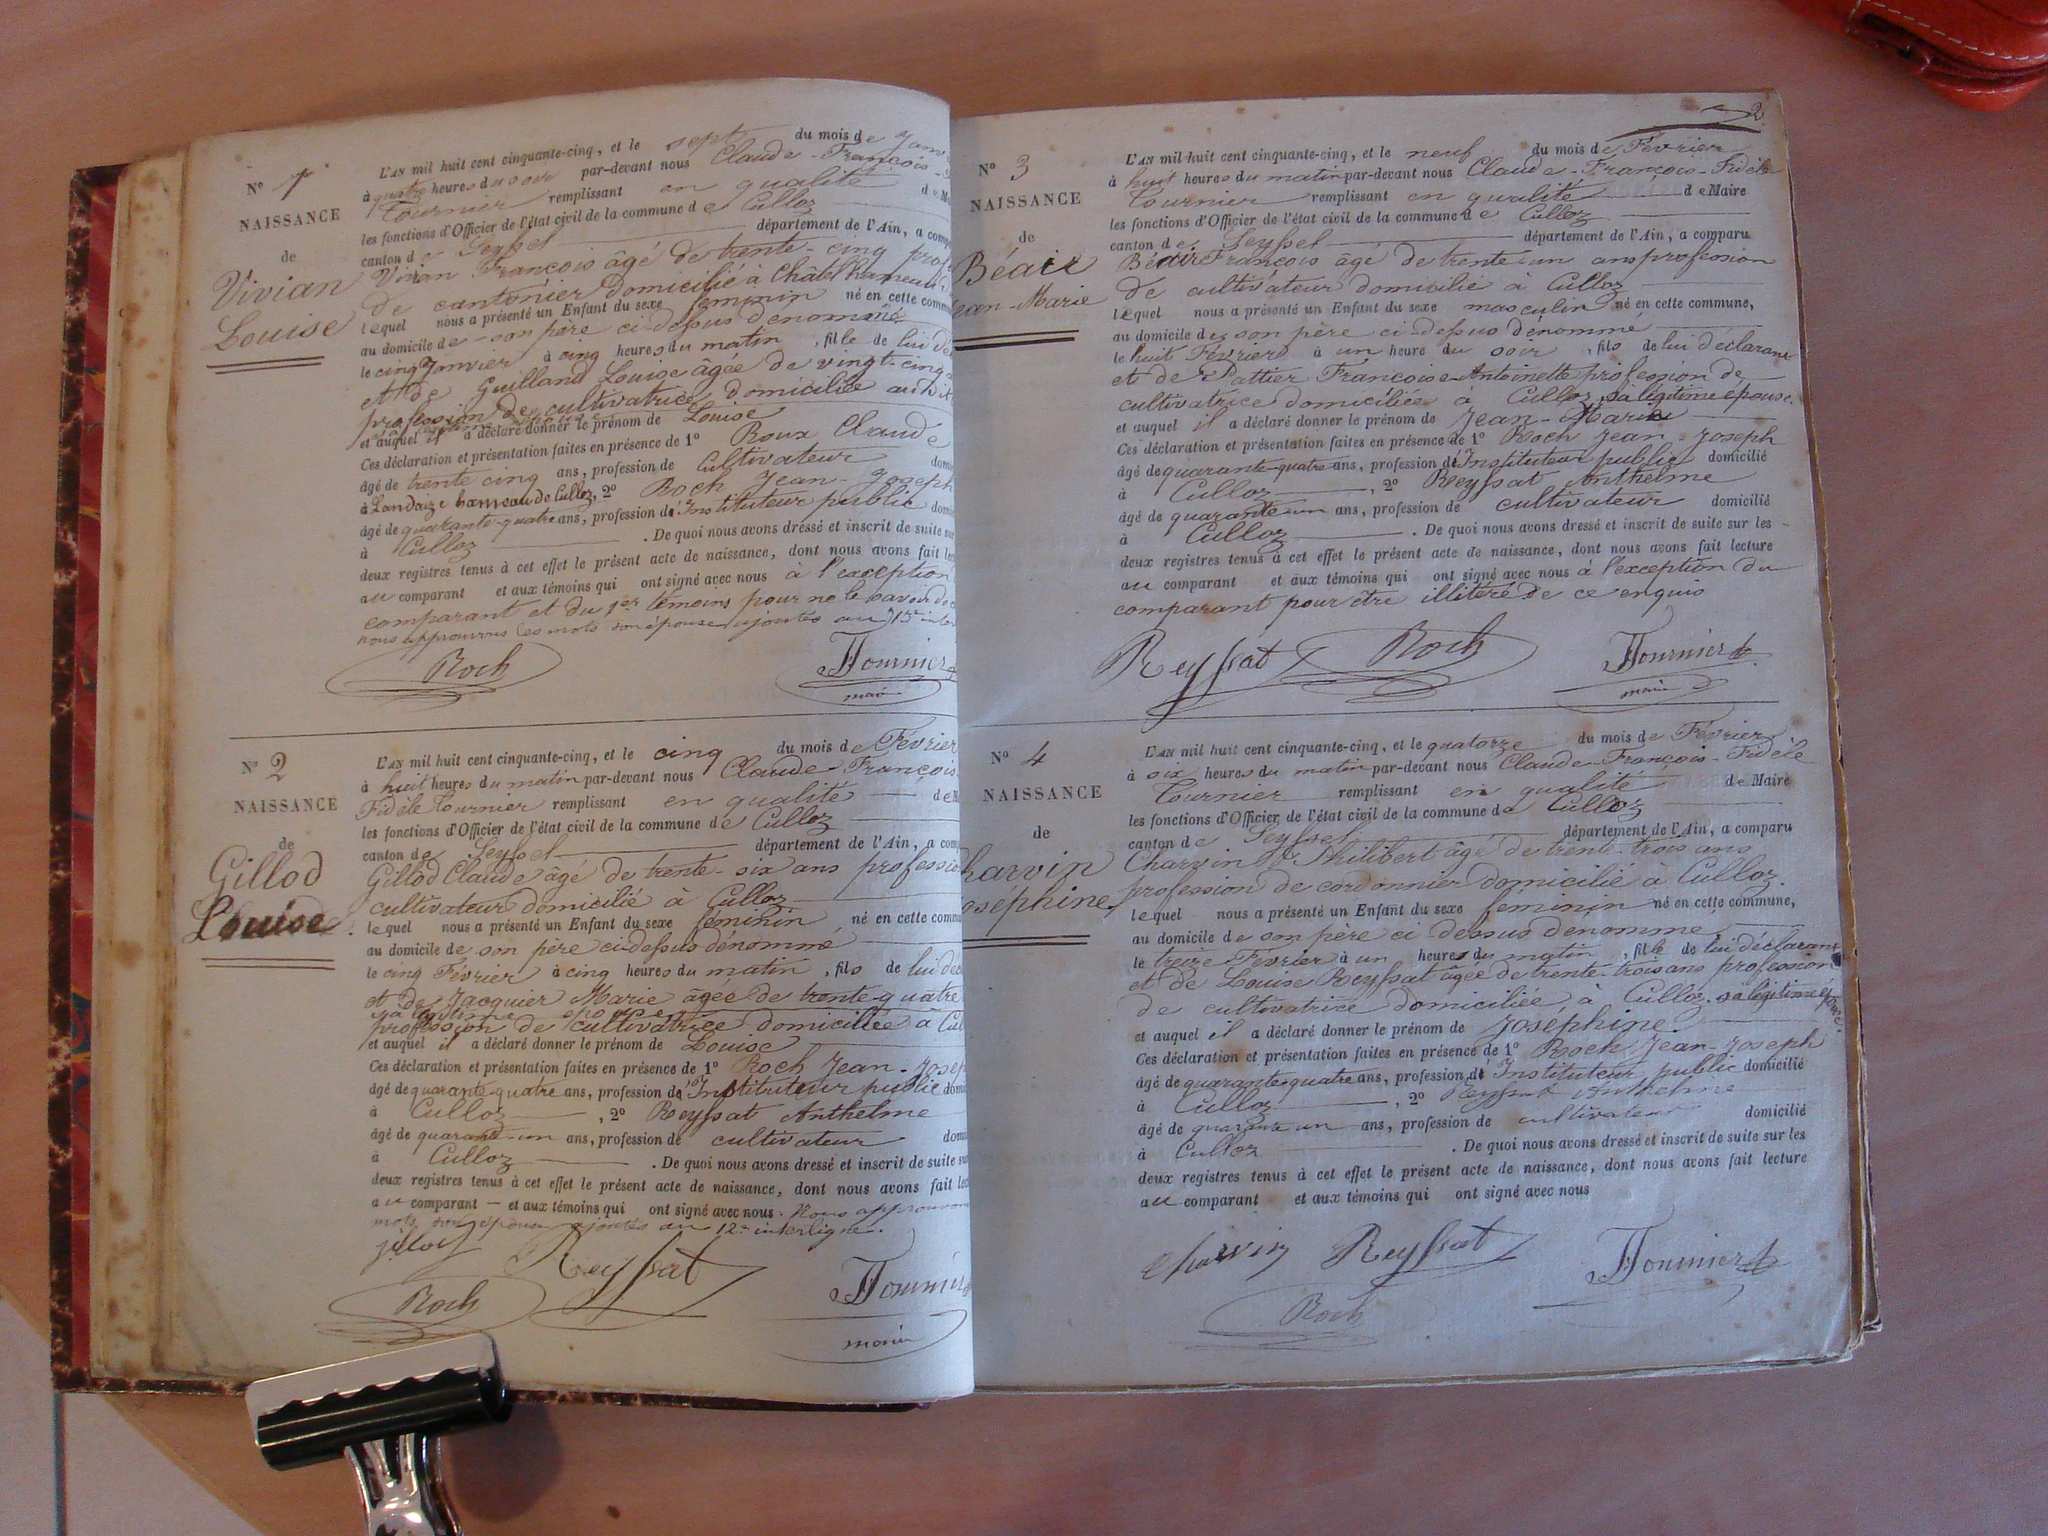 N° 1
NAISSANCE
de
Vivian
Louise
L'AN mil huit cent cinquante-cinq, et le sept du mois de
à quatre heures du soir par-devant nous Claude-François-
Tournier remplissant en qualité
les fonctions d'Officier de l'état civil de la commune de Culloz
canton de Seyssel département de l'Ain, a
Vivian François âgé de trente-cinq
de cantonier domicilié à
lequel nous a présenté un Enfant du sexe feminin né en cette
au domicile de son père ci-dessus dénommé
le cinq Janvier à cinq heures du matin, fille de lui
et de Guilland Louise âgée de vingt-cinq
profession de cultivatrice domiciliée
et auquel il a déclaré donner le prénom de Louise
Ces déclaration et présentation faites en présence de 1° Roux Claude
âgé de trente cinq ans, profession de Cultivateur
à Landaize hameau de Culloz, 2° Roch Jean-Joseph
âgé de quarante-quatre ans, profession d'Instituteur public
à Culloz . De quoi nous avons dressé et inscrit de suite
deux registres tenus à cet effet le présent acte de naissance, dont nous avons fait
au comparant et aux témoins qui ont signé avec nous à l'exception
comparant et du 1er témoins pour ne le savoir
nous approuvons les mots son épouse ajoutés au 15e
Roch Tournier
maire
N° 2
NAISSANCE
de
Gillod
Louise.
L'AN mil huit cent cinquante-cinq, et le cinq du mois de Février
à huit heures du matin par-devant nous Claude-François
Fidèle Tournier remplissant en qualité
les fonctions d'Officier de l'état civil de la commune de Culloz
canton de Seyssel département de l'Ain, a
Gillod Claude âgé de trente-six ans
cultivateur domicilié à Culloz
lequel nous a présenté un Enfant du sexe féminin né en cette
au domicile de son père ci-dessus dénommé
le cinq Février à cinq heures du matin, fils de lui
et de Jacquier Marie âgée de trente-quatre
sa légitime épouse
profession de cultivatrice domiciliée à
et auquel il a déclaré donner le prénom de Louise
Ces déclaration et présentation faites en présence de 1° Roch Jean-
âgé de quarante-quatre ans, profession d'Instituteur public
à Culloz , 2° Reyssat Anthelme
âgé de quarante-un ans, profession de cultivateur
à Culloz . De quoi nous avons dressé et inscrit de suite
deux registres tenus à cet effet le présent acte de naissance, dont nous avons fait
au comparant - et aux témoins qui ont signé avec nous. Nous
mots son épouse ajoutés au 12e interligne.
Reyssat
Roch
maire
2
N° 3
NAISSANCE
de
Béair
L'AN mil huit cent cinquante-cinq, et le neuf du mois de Février
à huit heures du matin par-devant nous Claude-François-Fidèle
Tournier remplissant en qualité de Maire
les fonctions d'Officier de l'état civil de la commune de Culloz
canton de Seyssel département de l'Ain, a comparu
Béair François âgé de trente-un ans profession
de cultivateur domicilié à Culloz
lequel nous a présenté un Enfant du sexe masculin né en cette commune,
au domicile de son père ci-dessus dénommé
le huit Février à un heure du soir, fils de lui déclarant
et de Pattier Françoise-Antoinette profession de
cultivatrice domiciliée à Culloz, sa légitime épouse.
et auquel il a déclaré donner le prénom de Jean-Marie
Ces déclaration et présentation faites en présence de 1° Roch Jean-Joseph
âgé de quarante-quatre ans, profession d'Instituteur public domicilié
à Culloz , 2° Reyssat Anthelme
âgé de quarante un ans, profession de cultivateur domicilié
à Culloz . De quoi nous avons dressé et inscrit de suite sur les
deux registres tenus à cet effet le présent acte de naissance, dont nous avons fait lecture
au comparant et aux témoins qui ont signé avec nous à l'exception du
comparant pour être illitéré de ce enquis
Reyssat Roch Tournier
maire
N° 4
NAISSANCE
de
L'AN mil huit cent cinquante-cinq, et le quatorze du mois de Février
à six heures du matin par-devant nous Claude-François-Fidèle
Tournier remplissant en qualité de Maire
les fonctions d'Officier de l'état civil de la commune de Culloz
canton de Seyssel département de l'Ain, a comparu
Charvin Philibert âgé de trente-trois ans
profession de cordonnier domicilié à Culloz.
lequel nous a présenté un Enfant du sexe féminin né en cette commune,
au domicile de son père ci dessus dénommé
le treize Février à un heures du matin, fille de lui déclarant
et de Louise Reyssat âgée de trente-trois ans profession
de cultivatrice domiciliée à Culloz. sa légitime épouse.
et auquel il a déclaré donner le prénom de Joséphine.
Ces déclaration et présentation faites en présence de 1° Roch Jean-Joseph
âgé de quarante-quatre ans, profession d'Instituteur public domicilié
à Culloz , 2° Reyssat Anthelme
âgé de quarante un ans, profession de cultivateur domicilié
à Culloz . De quoi nous avons dressé et inscrit de suite sur les
deux registres tenus à cet effet le présent acte de naissance, dont nous avons fait lecture
au comparant et aux témoins qui ont signé avec nous
Charvin Reyssat Tournier
Roch